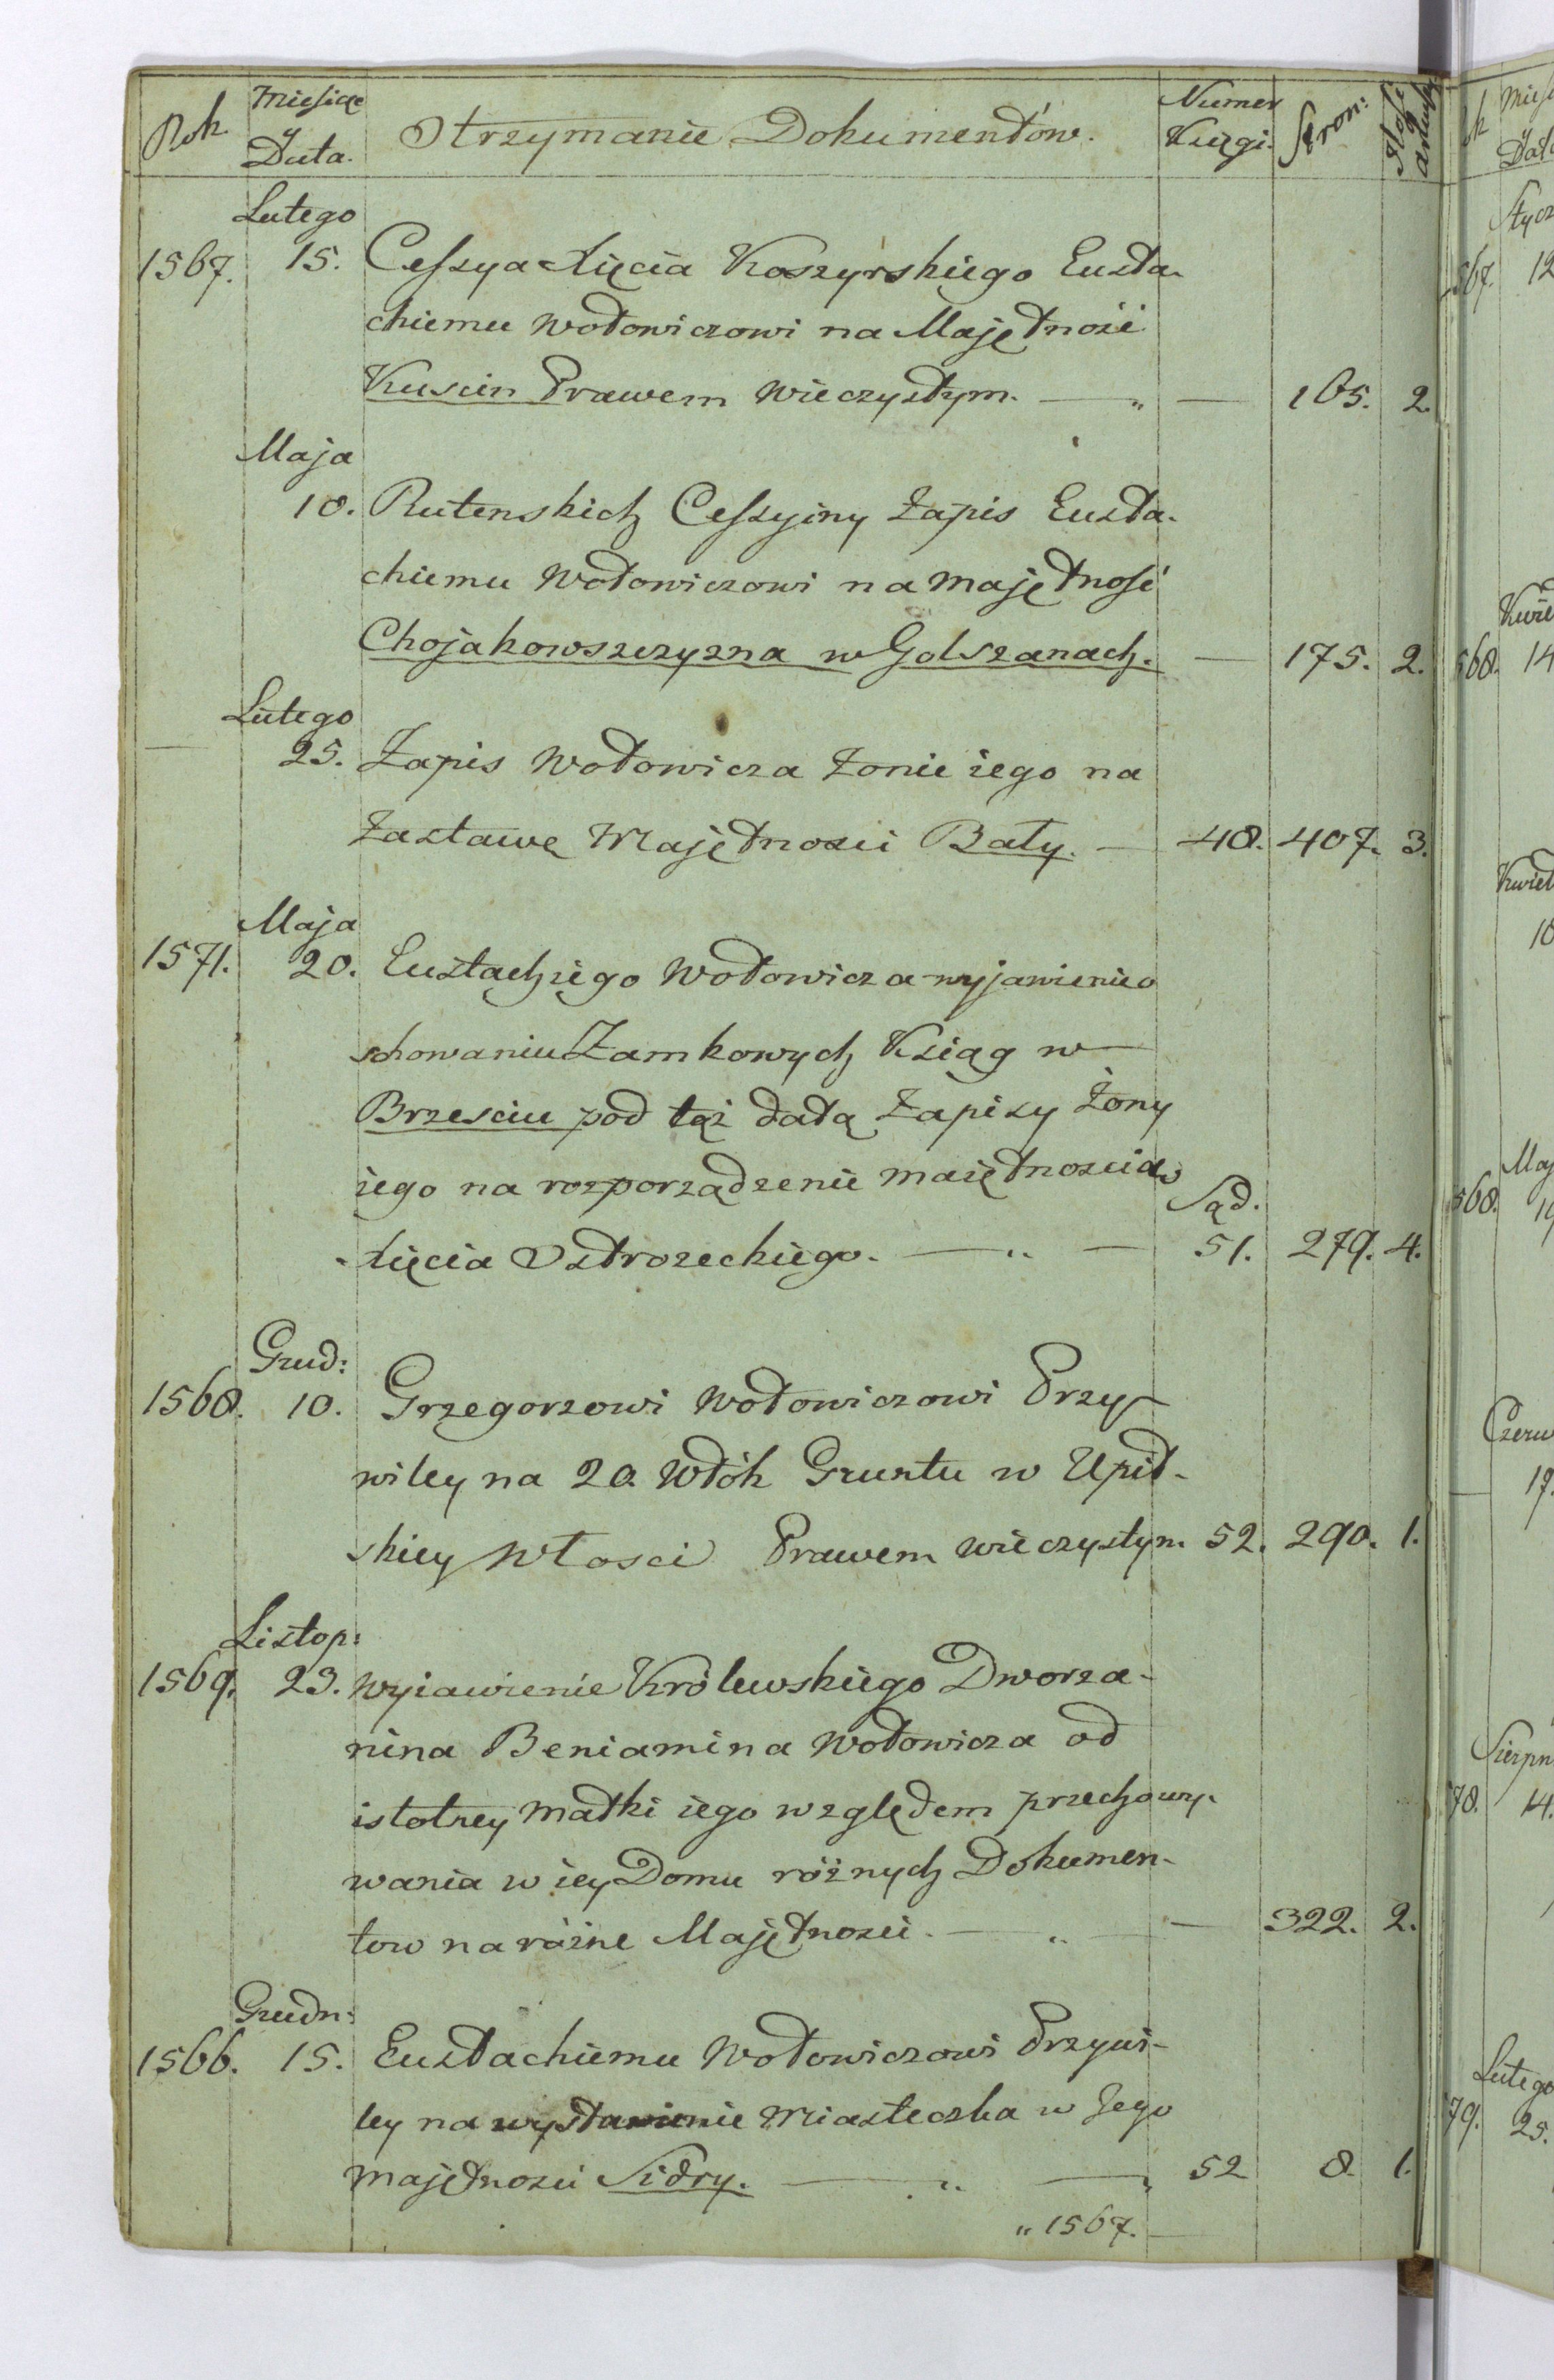 Rok Miesiąc y Data. Otrzymanie Dokumentów. Numer Księgi. Stron: Ilość Arkusz:
Lutego
1567. 15. Cessya Xięcia Koszyrskiego Eusta-
chiemu Wołowiczowi na Majętność
Kuscin Prawem Wieczystym. — „ — 165. 2.
Maja
18. Rutenskich Cessyiny Zapis Eusta-
chiemu Wołowiczowi na Majętność
Chojakowszczyzna w Golszanach. — 175. 2.
Lutego
— 25. Zapis Wołowicza Żonie iego na
Zastawę Majętnosci Bały. — 48. 407. 3.
Maja
1571. 20. Eustachiego Wołowicza wyjawienie o
schowaniu Zamkowych Ksiąg w
Brzesciu pod tąż datą Zapisy Żony
iego na rozporządzenie maiętnoscią
Sąd.
Xięcia Ostrozeckiego. — „ — 51. 279. 4.
Grud:
1568. 10. Grzegorzowi Wołowiczowi Przy-
wiley na 20. Włók Gruntu w Upit-
skiey Włosci Prawem wieczystym. 52. 290. 1.
Listop:
1569. 23. Wyiawienie Królewskiego Dworza-
nina Beniamina Wołowicza od
istotney Matki iego względem przechowy-
wania w iey Domu różnych Dokumen-
tow na różne Majętnosci. — „ — 322. 2.
Grudn:
1566. 15. Eustachiemu Wołowiczowi Przywi-
ley na wystawienie Miasteczka w Jego
majętnosci Sidry. — „ — 52 8. 1.
„ 1567. —